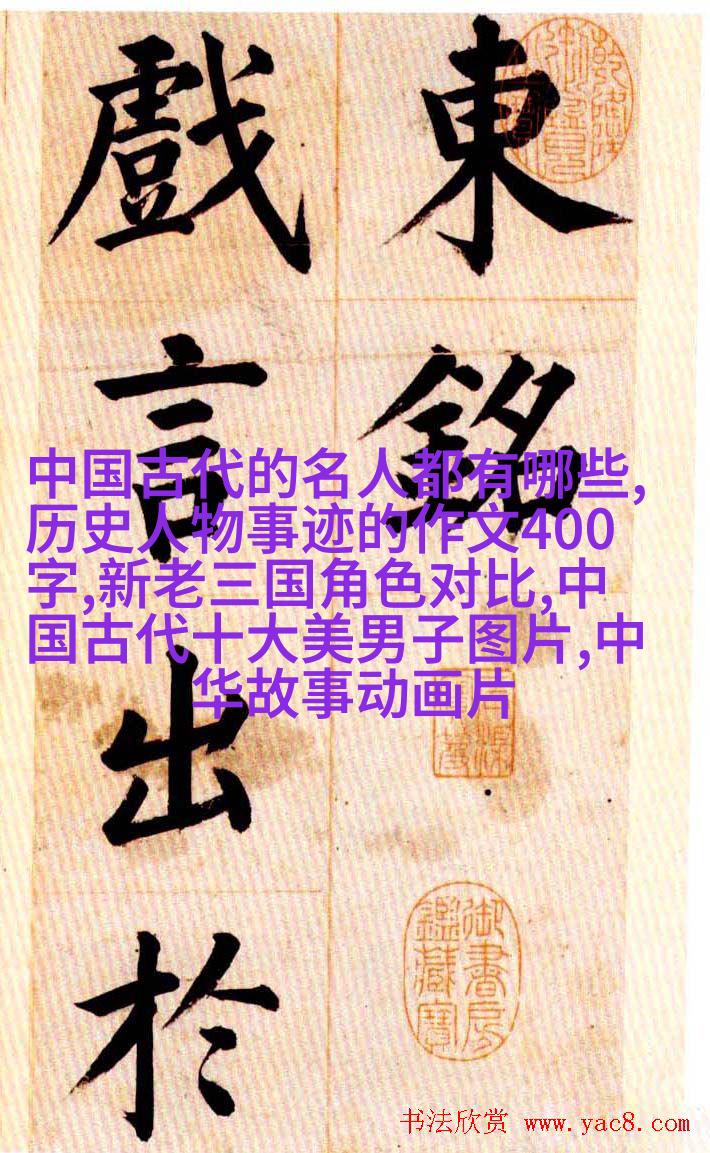 東銘
戲言出於
中国古代的名人都有哪些,
历史人物事迹的作文400
字,新老三国角色对比,中
国古代十大美男子图片,中
华故事动画片
御書房
鑑藏寶
书法欣赏 www.yac8.com